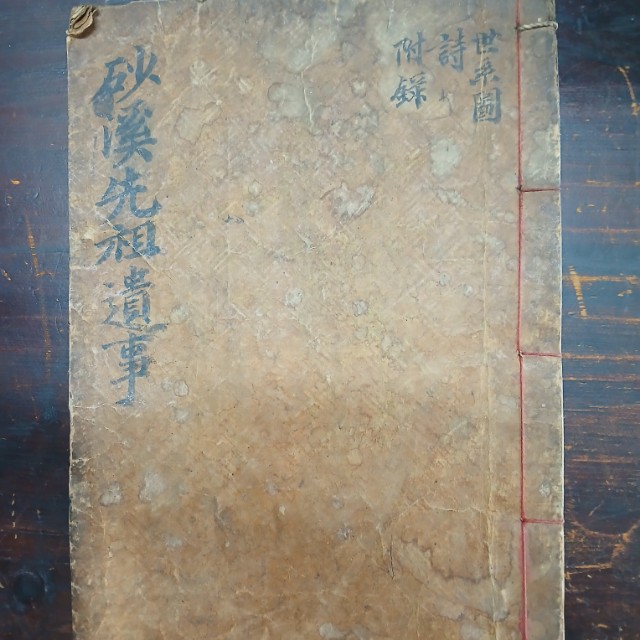 世系圖
詩
附錄
砂溪先祖遺事